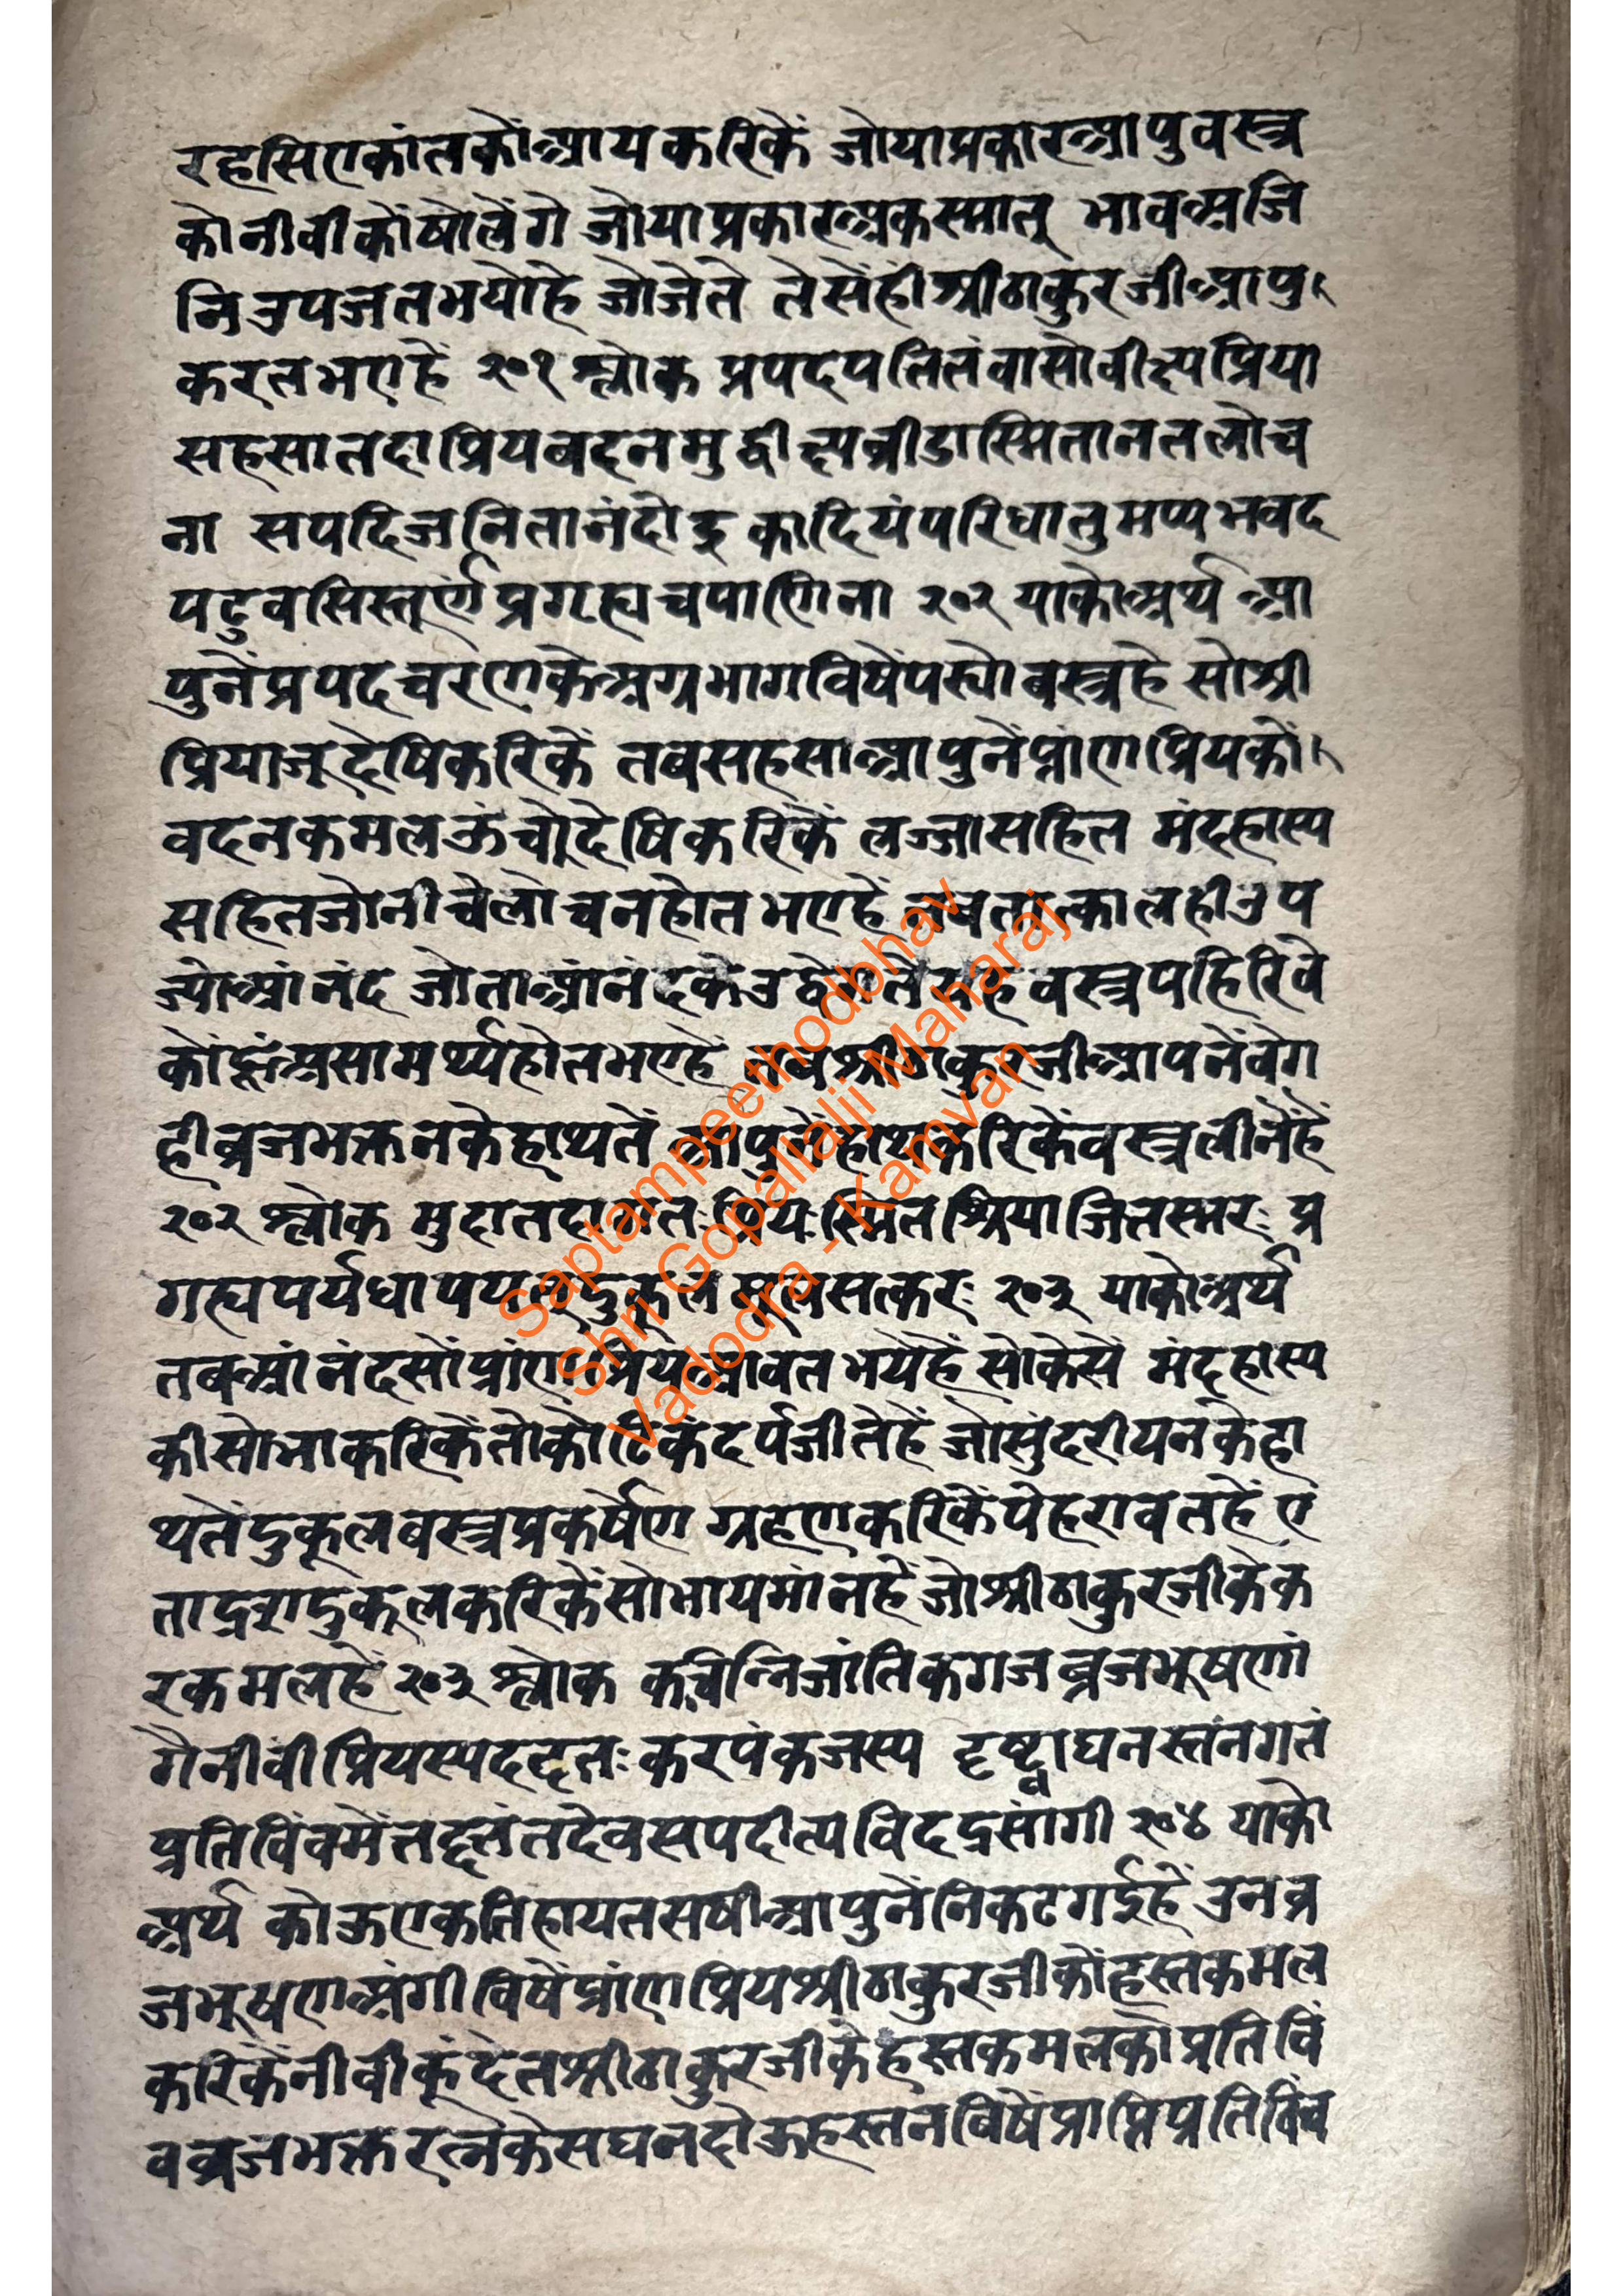 रहसिएकांतकोंआयकरिकें जोयाप्रकारआपुवस्त्र
कोनीवीकोंषोलेंगे जोयाप्रकारअकस्मात् भावअजि
निउपजतभयोहे जोजेते तेसेंहीश्रीठाकुरजीआपु
करतभएहें २०१ श्लोक प्रपदपतितंवासोवीक्ष्यप्रिया
सहसातदाप्रियवदनमुद्वीक्ष्यव्रीडास्मितानतलोच
ना सपदिजनितानंदोद्रकादियंपरिधातुमप्यभवद
पटुवसिस्तूर्णंप्रगृह्यचपाणिना २०२ याकोअर्थ आ
पुनेंप्रपदचरणकेअग्रभागविषेंपस्योवस्त्रहे सोश्री
प्रियाजूदेषिकरिकें तवसहसाआपुनेंप्रांणप्रियकों
वदनकमलऊंचोदेषिकरिकें लज्जासहित मंदहास्य
सहितजोनीचेलोचनहोतभएहें तवतात्कालहीउप
ज्योआंनंद जोताआंनंदके वस्त्रपहिरिवे
कोंहूंअसामर्थ्यहोतभएहें तवश्रीठाकुरजीआपनेंवेग
हीव्रजभक्तनकेहाथतें आपुनेंहाथकरिकेंवस्त्रलीनेंहें
२०२ श्लोक मुदातदागतःप्रियःस्मितश्रियाजितस्मरः प्र
गृह्यपर्यधापयत्दुकूलमुल्लसत्करः २०३ याकोअर्थ
तवआंनंदसोंप्रांणप्रियआवतभयेहें सोकेसें मंदहास्य
कीसोभाकरिकेंतोकोटिकंदर्पजीतेहें जोसुंदरीयनकेहा
थतेंदुकूलवस्त्रप्रकर्षेण ग्रहणकरिकेंपेहरावतहें ए
ताद्रशदुकूलकरिकेंसोभायमांनहें जोश्रीठाकुरजीकेक
रकमलहें २०३ श्लोक कचिन्निजांतिकगजव्रजभूषणां
गैनीवीं प्रियस्यददतृतःकरपंकजस्य दृष्ट्वाघनस्तंनगतं
प्रतिविंवमेंतद्दत्तंतदेवसपदीत्यविदद्रसांगी २०४ याको
अर्थ कोऊएकतिहायतसषीआपुनेंनिकटगईहें उनव्र
जभूषणअंगीविषेंप्रांणप्रियश्रीठाकुरजीकोंहस्तकमल
करिकेंनीवीकूंदेतश्रीठाकुरजीकेहस्तकमलकोप्रतिविं
वव्रजभक्तरत्नकेसघनदोऊहस्तनविषेंप्राप्तिप्रतिविंव
Saptampeethodbhav
Shri Gopallalji Maharaj
Vadodra - Kamvan